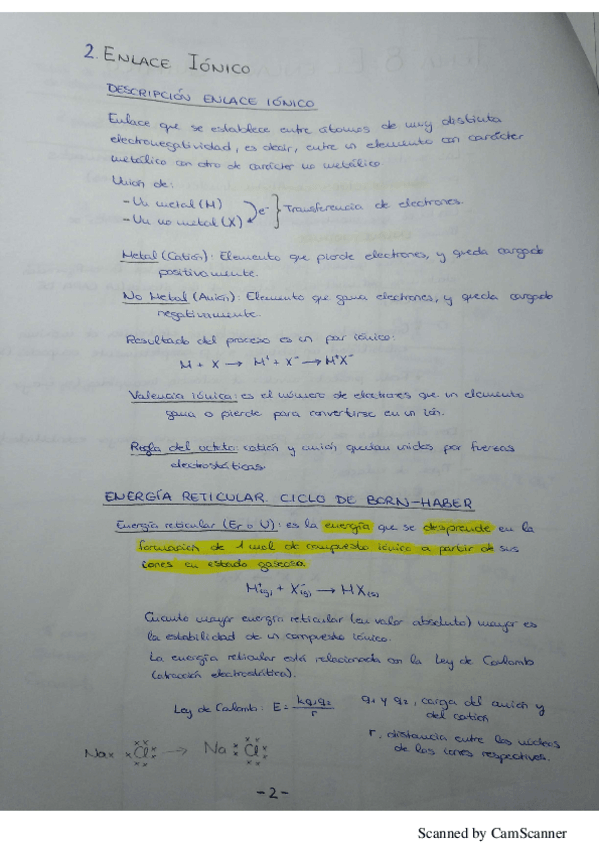 2. ENLACE IÓNICO
DESCRIPCIÓN ENLACE IÓNICO
Enlace que se establece entre átomos de muy distinta
electronegatividad, es decir, entre un elemento con carácter
metálico con otro de carácter no metálico
Unión de:
- Un metal (M)
- Un no metal (X)
e⁻ } Transferencia de electrones.
Metal (Catión): Elemento que pierde electrones, y queda cargado
positivamente.
No Metal (Anión): Elemento que gana electrones, y queda cargado
negativamente.
Resultado del proceso es un par iónico:
M + X → M⁺ + X⁻ → M⁺X⁻
Valencia iónica: es el número de electrones que un elemento
gana o pierde para convertirse en un ión.
Regla del octeto: catión y anión quedan unidos por fuerzas
electrostáticas.
ENERGÍA RETICULAR. CICLO DE BORN-HABER
Energía reticular (Er o U): es la energía que se desprende en la
formación de 1 mol de compuesto iónico a partir de sus
iones en estado gaseoso.
M⁺(g) + X⁻(g) → MX(s)
Cuanto mayor energía reticular (en valor absoluto) mayor es
la estabilidad de un compuesto iónico.
La energía reticular está relacionada con la Ley de Coulomb
(atracción electrostática).
Ley de Coulomb: E = kq₁q₂/r
q₁ y q₂, carga del anión y
del catión
r, distancia entre los núcleos
de los iones respectivos.
Na× ×Cl → Na ×Cl
-2-
Scanned by CamScanner